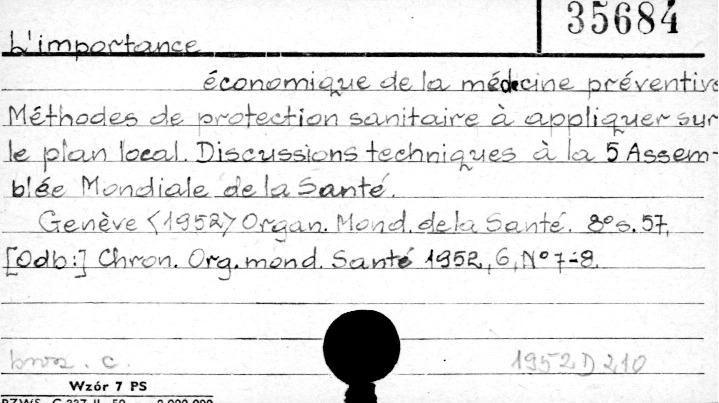 35684
L'importance
économique de la médecine préventive
Méthodes de protection sanitaire à appliquer sur
le plan local. Discussions techniques à la 5 Assem-
blée Mondiale de la Santé.
Genève <1952> Organ. Mond. de la Santé. 8° s. 57.
[Odb:] Chron. Org. mond. Santé 1952, 6, N° 7-8.
brosz. c. 1952 D 210
Wzór 7 PS